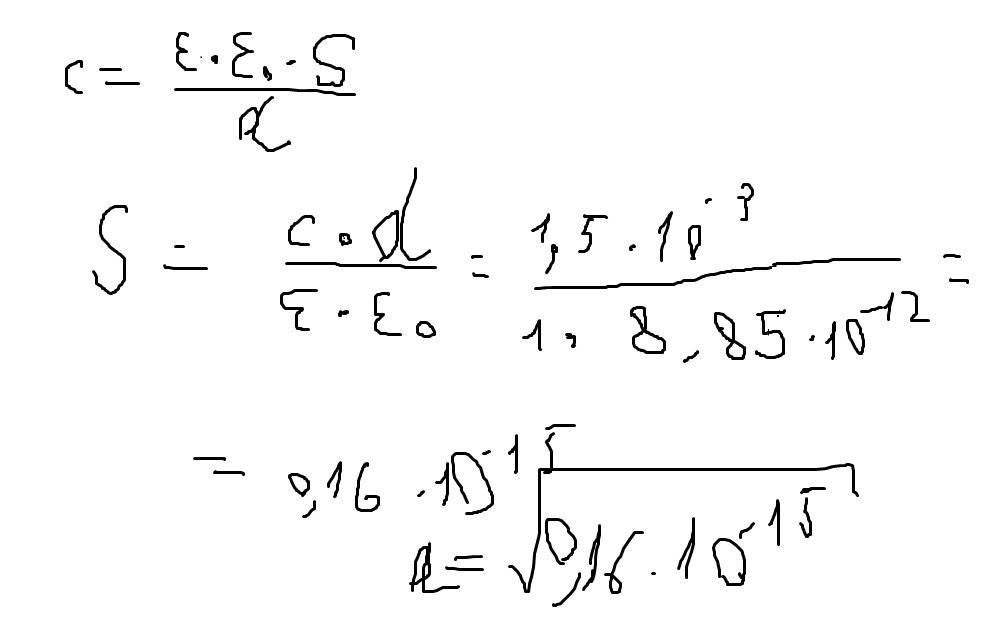 c = (ε·ε₀·S)/d
S = (c·d)/(ε·ε₀) = (1,5·10⁻³)/(1·8,85·10⁻¹²) =
= 0,16·10⁻¹⁵
a = √(0,16·10⁻¹⁵)